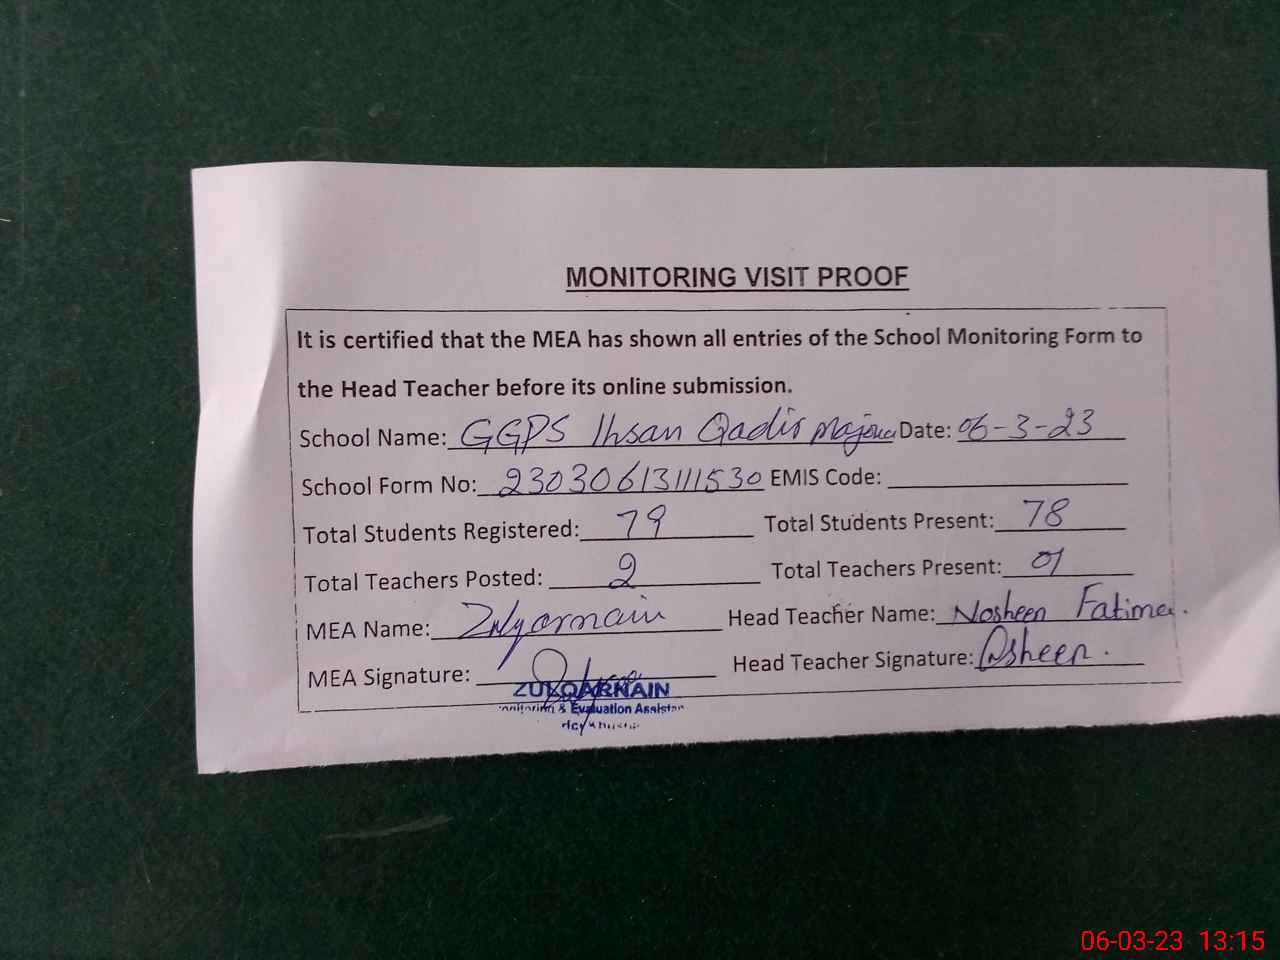 MONITORING VISIT PROOF
It is certified that the MEA has shown all entries of the School Monitoring Form to
the Head Teacher before its online submission.
School Name: GGPS Ihsan Qadir Date: 06-3-23
School Form No: 23030613111530 EMIS Code:
Total Students Registered: 79 Total Students Present: 78
Total Teachers Posted: 2 Total Teachers Present: 01
MEA Name: Zulqarnain Head Teacher Name: Nosheen Fatima.
MEA Signature: Head Teacher Signature: Nosheen.
ZULQARNAIN
Monitoring & Evaluation Assistan
06-03-23 13:15